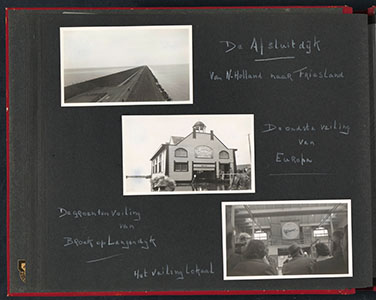 De Afsluitdijk
Van N-Holland naar Friesland
De oudste veiling
van
Europa
De groentenveiling
van
Broek op Langendijk
Het veilinglokaal